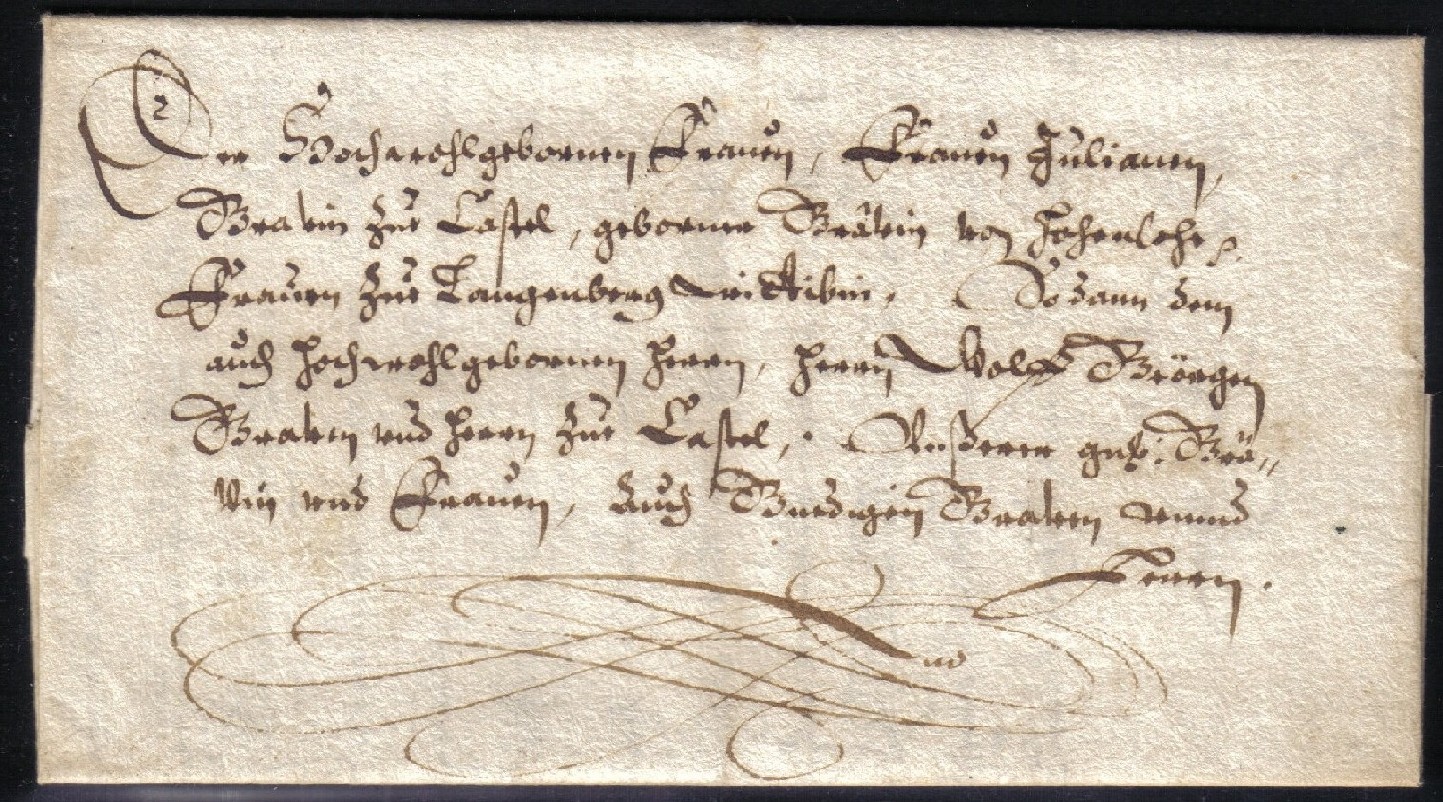 Der Hochwohlgebornen Frauen, Frauen Julianen,
Gravin zue Castel, geborner Grävin von Hohenlohe,
Frauen zue Langenberg Wittibin. So dann dem
auch hochwohlgebornen herrn, herrn Wolff Geörgen
Graven und herrn zue Castel, Unßerer gnd: Grä„
vin und Frauen, auch Gnedigen Graven vnnd
Herrn.